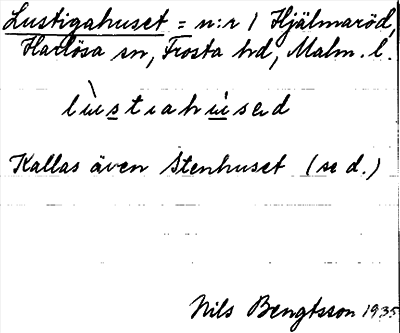 Lustigahuset = n:r 1 Hjälmaröd,
Harlösa sn, Frosta hd, Malm. l.
lùstiahùsed
Kallas även Stenhuset (se d.)
Nils Bengtsson 1935